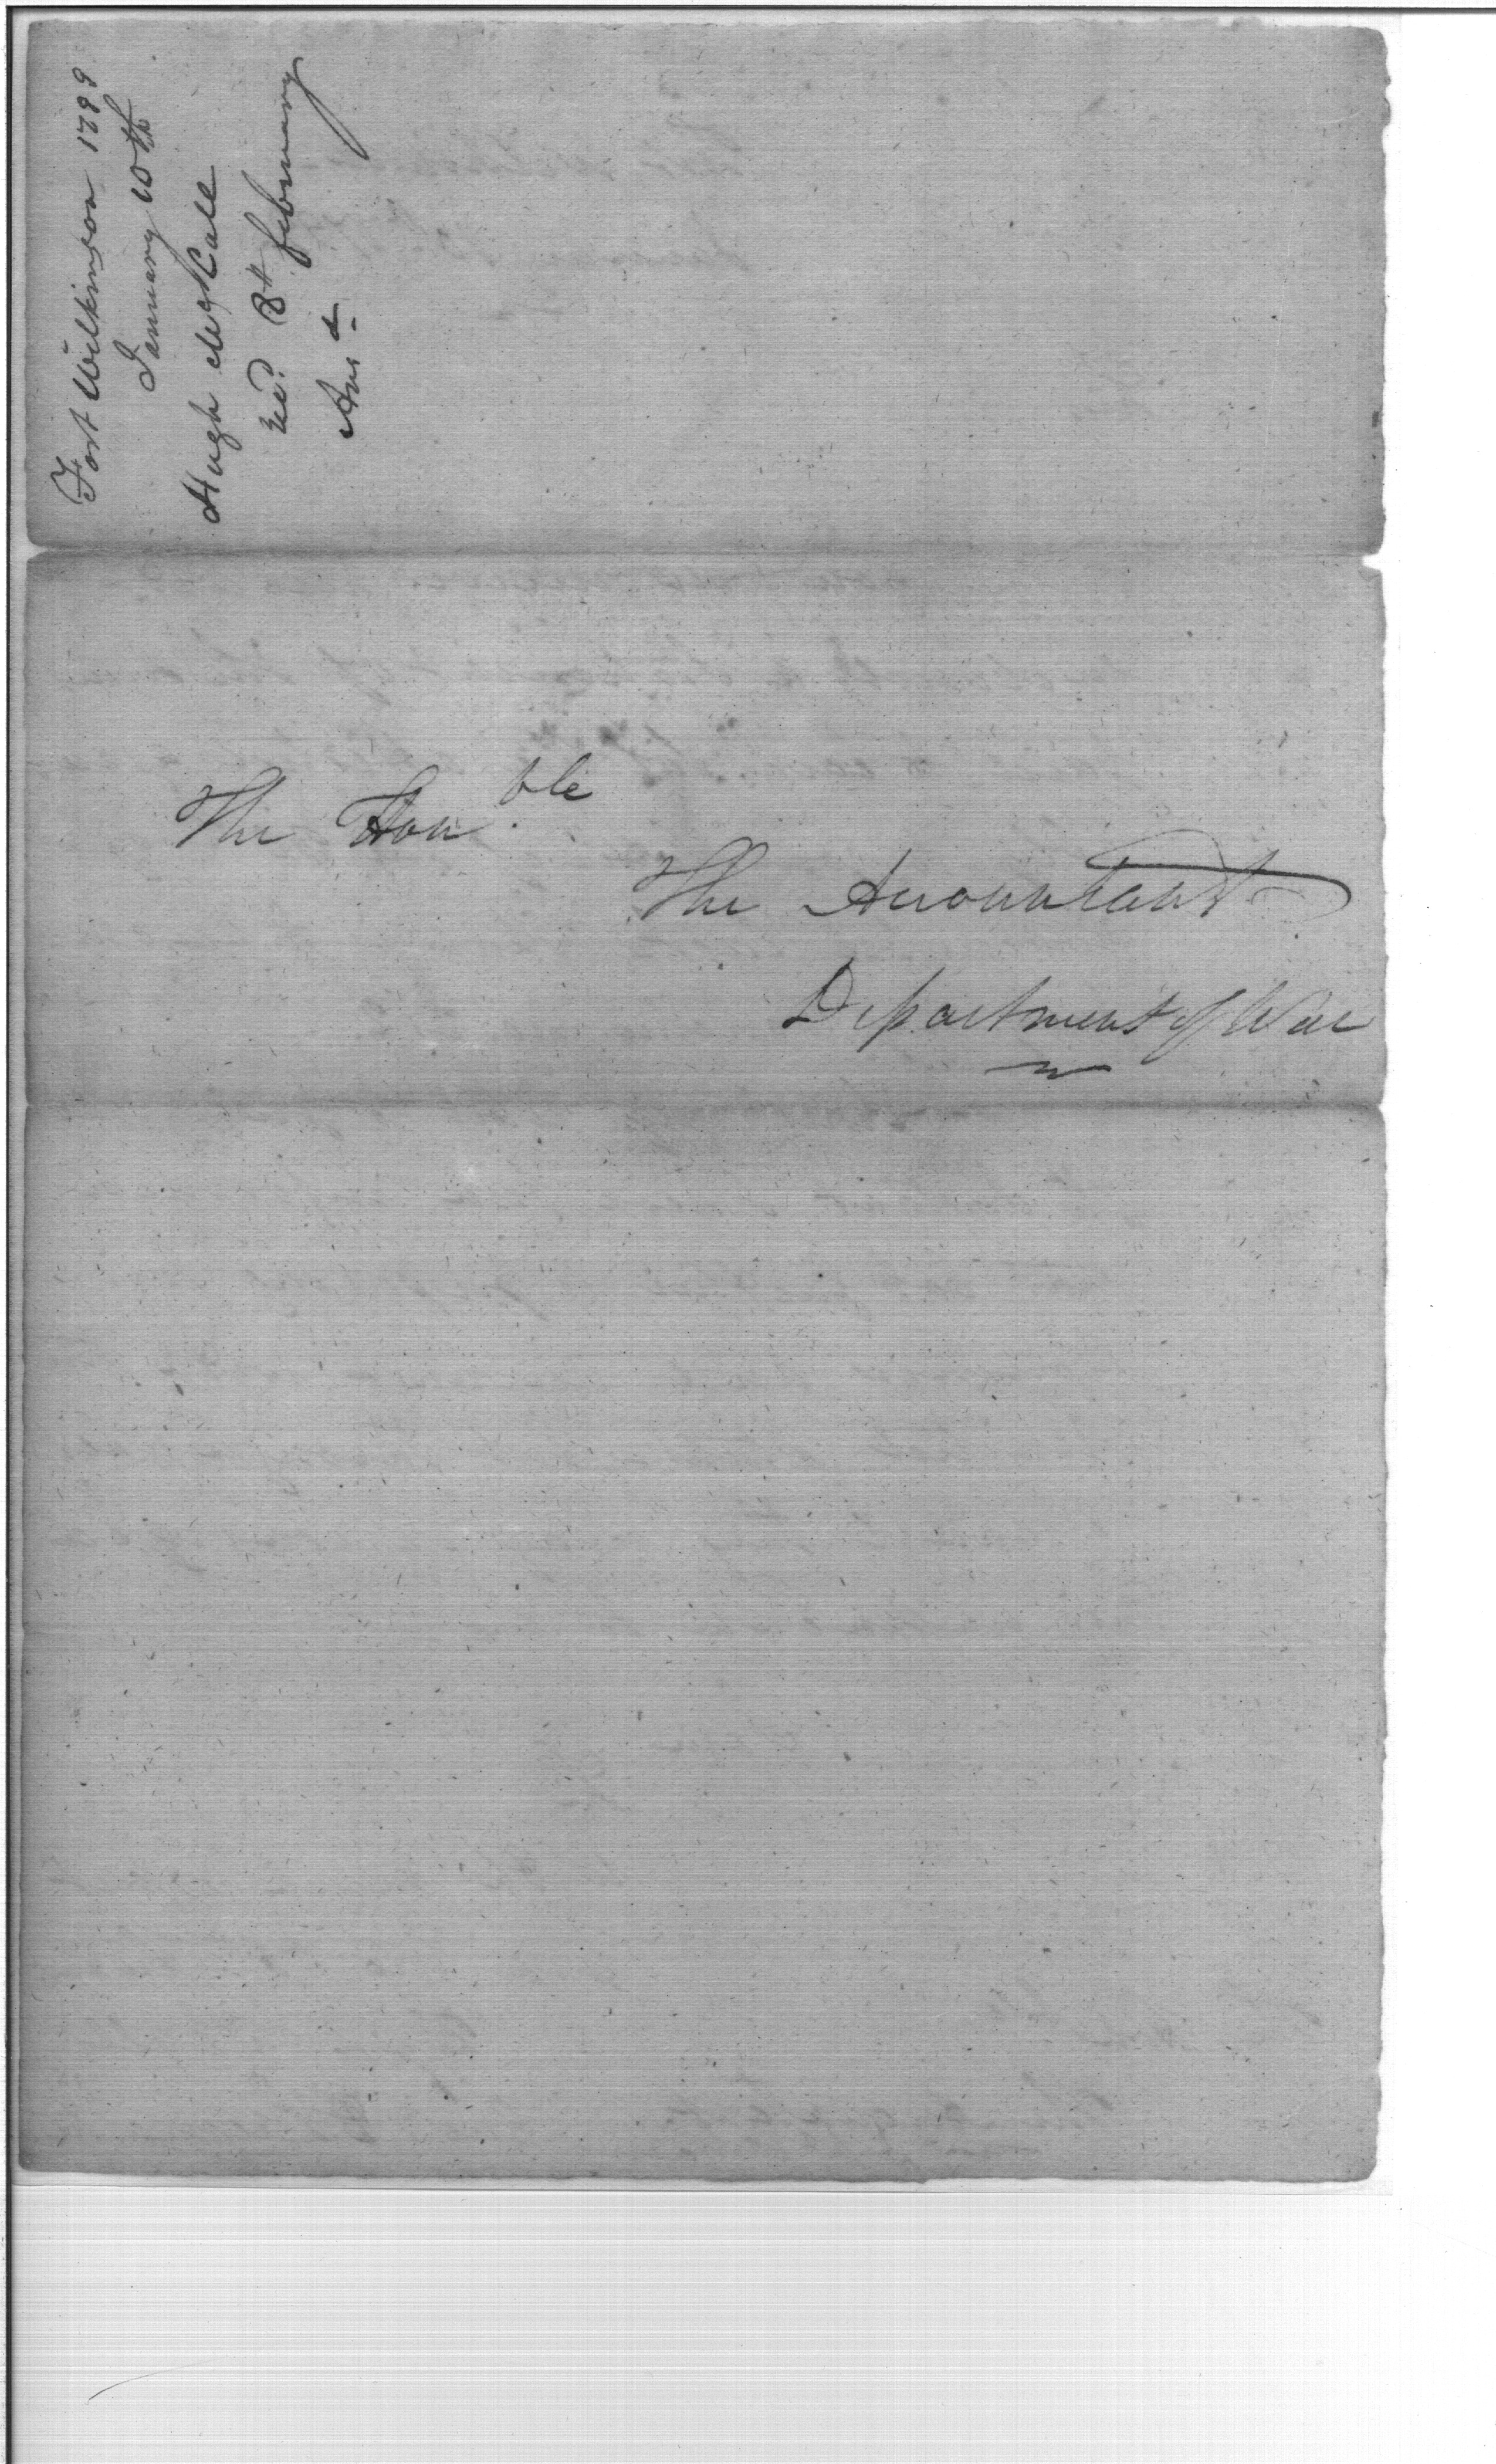 Fort Wilkinson 1799
January 10th
Hugh McCall
recd. 8th February
Ansd
The Honble
The Accountant
Department of War